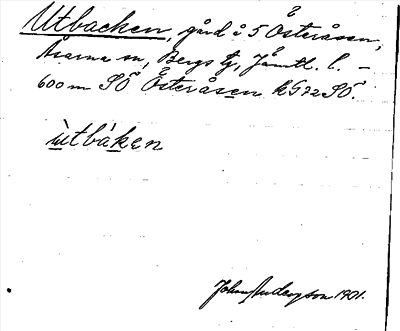 Utbacken, gård å 5 Österåsen,
Åsarne sn, Bergs tg, Jämtl. l. –
600 m SÖ Österåsen kG72SÖ.
ùtbáken
Johan Andersson 1901.